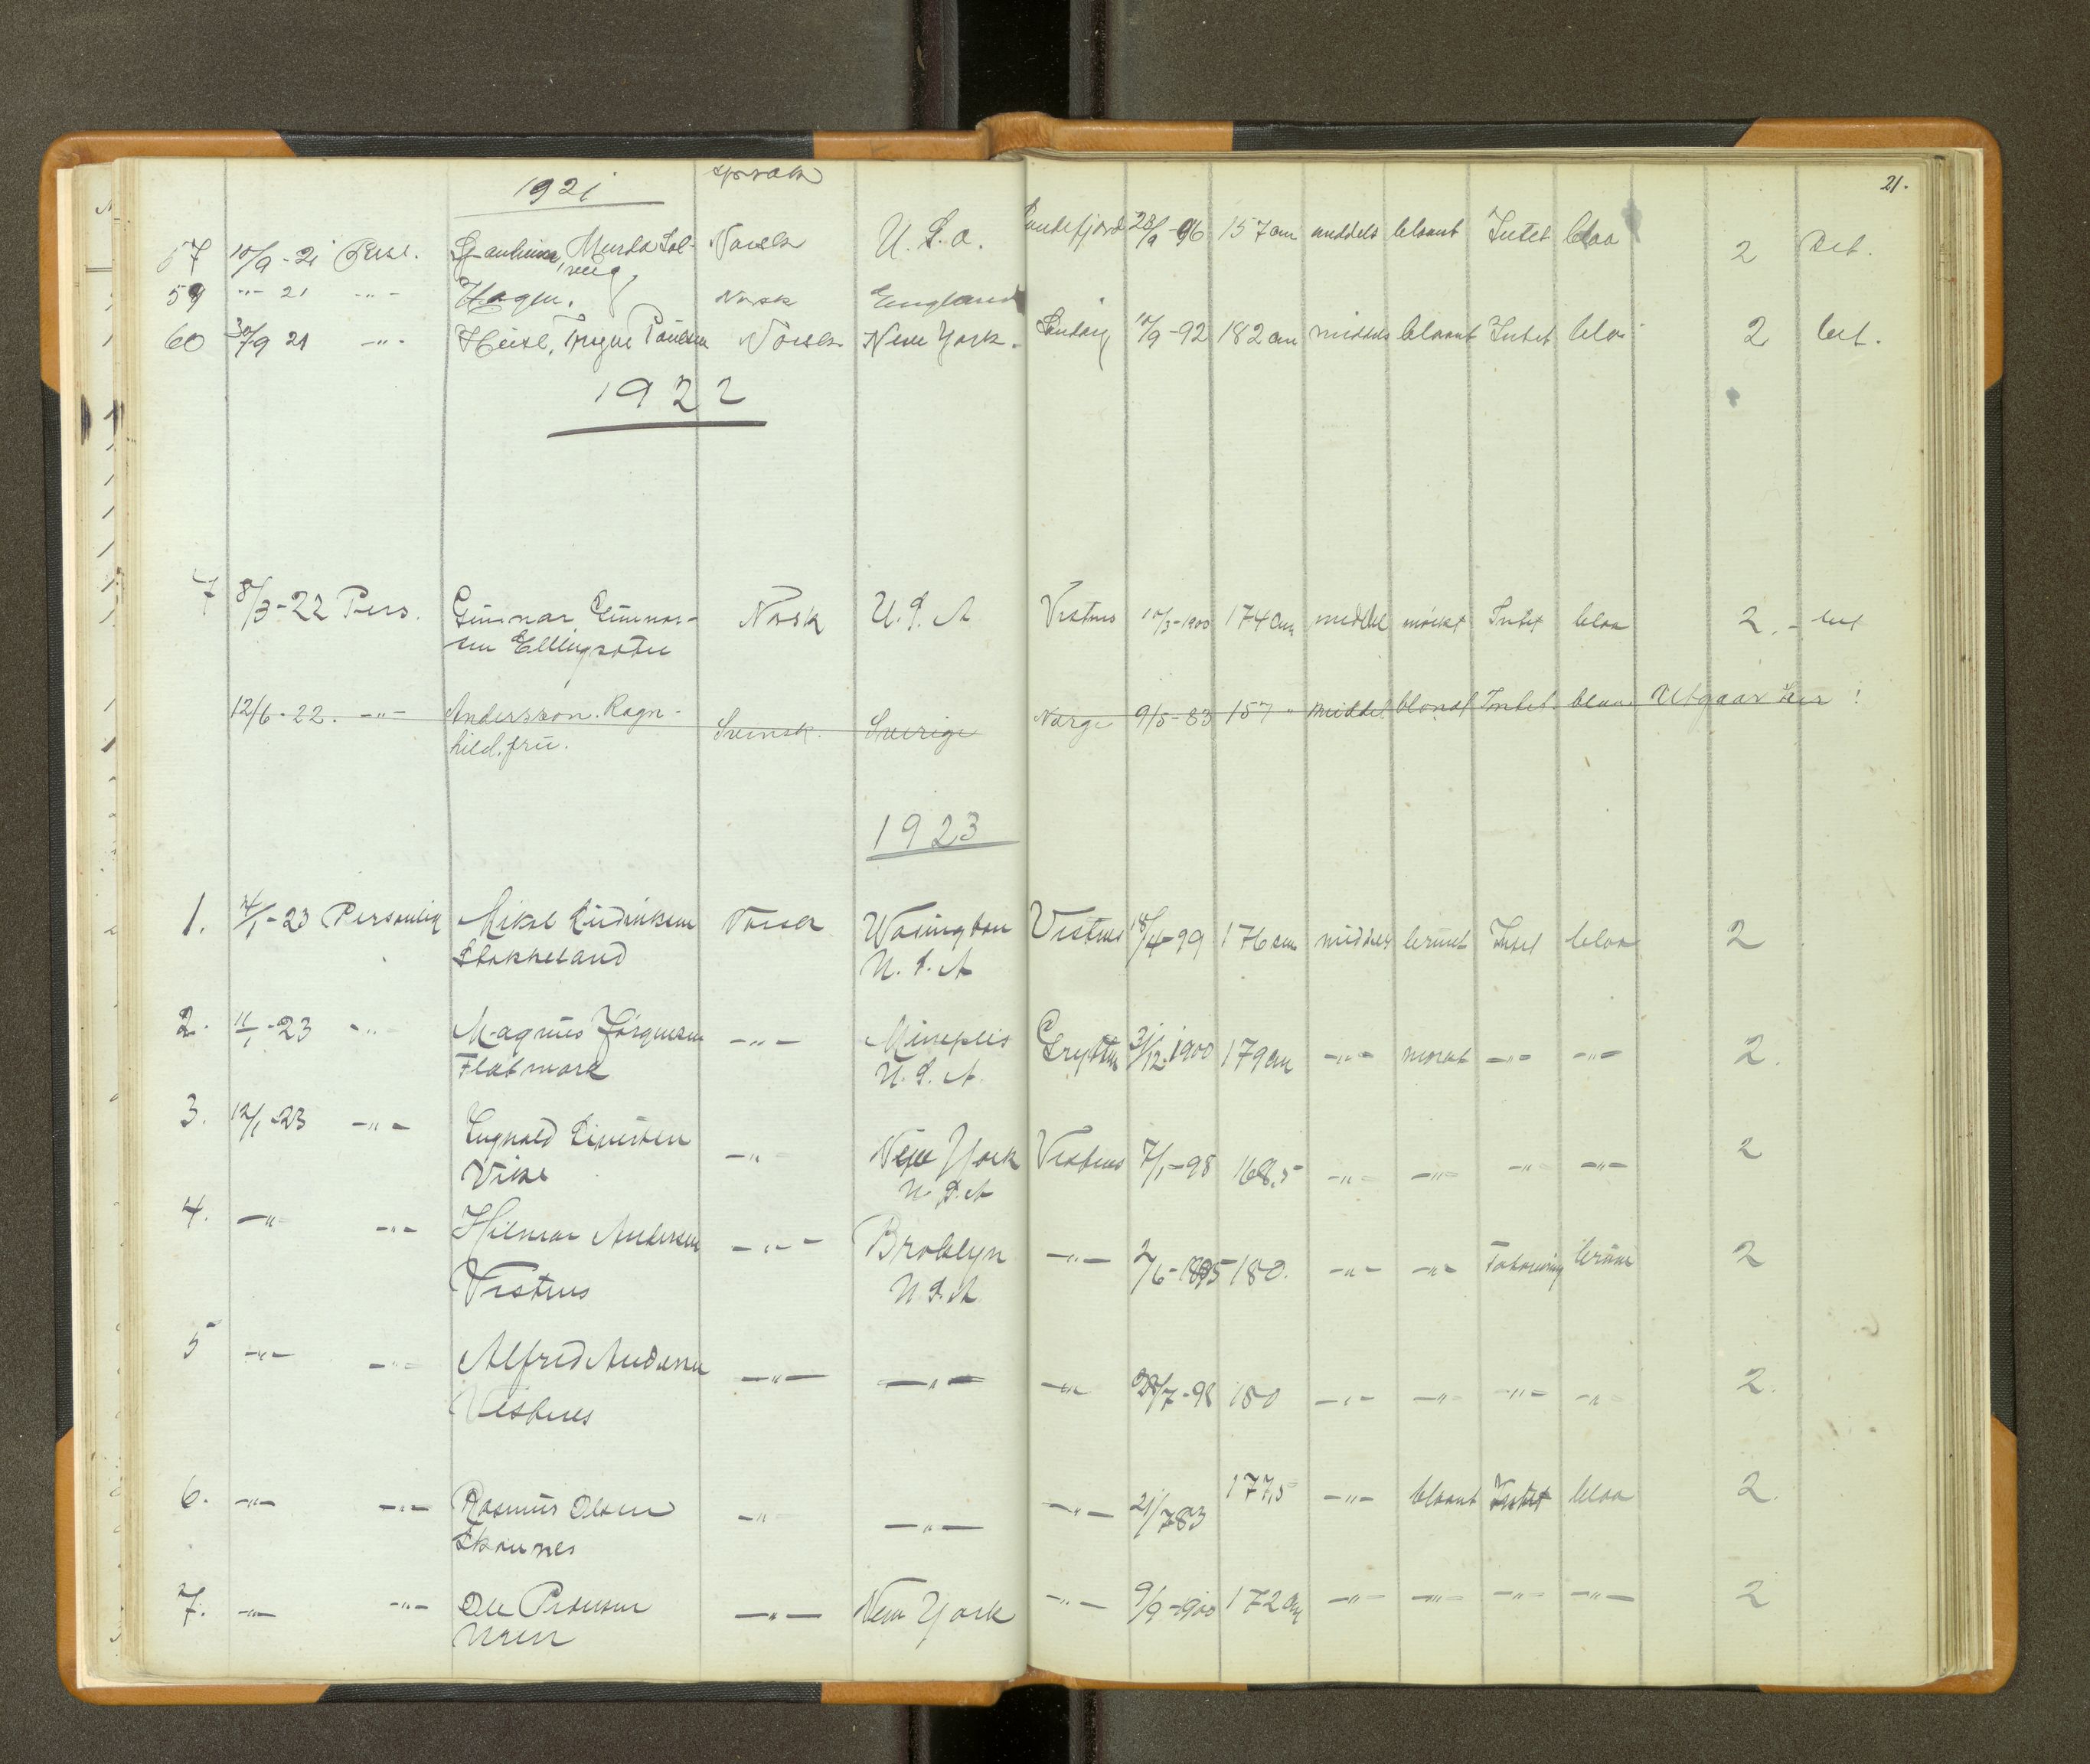 21.
1921
sprok
57 10/9-21 Pers. Mirda Sol- Norsk U.S.a. 28/9-96 157 cm middels blaant Intet blaa 2 Bet.
veig
59 -"- 21 -"- Hagen. Norsk England
60 30/9 21 -"- Trygve Paulsen Norsk New York. 10/9-92 182 cm middels blaant Intet blaa 2 bet.
1922
7 8/3-22 Pers. Gunnar Gunnar- Norsk U.S.A Vestnes 10/3-1900 174 cm middel mørkt Intet blaa 2.- bet
sen Ellingsæter
12/6-22. -"- Andersson. Ragn- Svensk. Sverige Norge 9/5-83 157 " middel blond Intet blaa. Utgaar her!
hild. fru.
1923
1. 4/1-23 Personlig Mikal Norsk Wasington Vestnes 18/4-99 176 cm middels brunt Intet blaa 2
Stokkeland U.S.A
2. 11/1-23 -"- Magnus Jørgensen -"- Mineplis Grytten 31/12.1900 179 cm -"- mørkt -"- -"- 2.
Flatmark U.S.A.
3. 12/1-23 -"- Ingvald -"- New York Vestnes 7/1-98 168,5 -"- -"- -"- -"- 2
Vike U.S.A
4. -"- -"- Hilmar Andersen -"- Broklyn -"- 2/6-1895 180. -"- -"- Tatovering brune 2
Vestnes U.S.A
5 -"- -"- Alfred Andersen -"- -"- -"- 28/7-98 180 -"- -"- -"- -"- 2.
Vestnes
6. -"- -"- Rasmus Olsen -"- -"- -"- 21/783 177,5 -"- blaant Intet blaa 2.
7. -"- -"- Ole Pedersen -"- New York -"- 9/9-900 172 cm -"- -"- -"- -"- 2